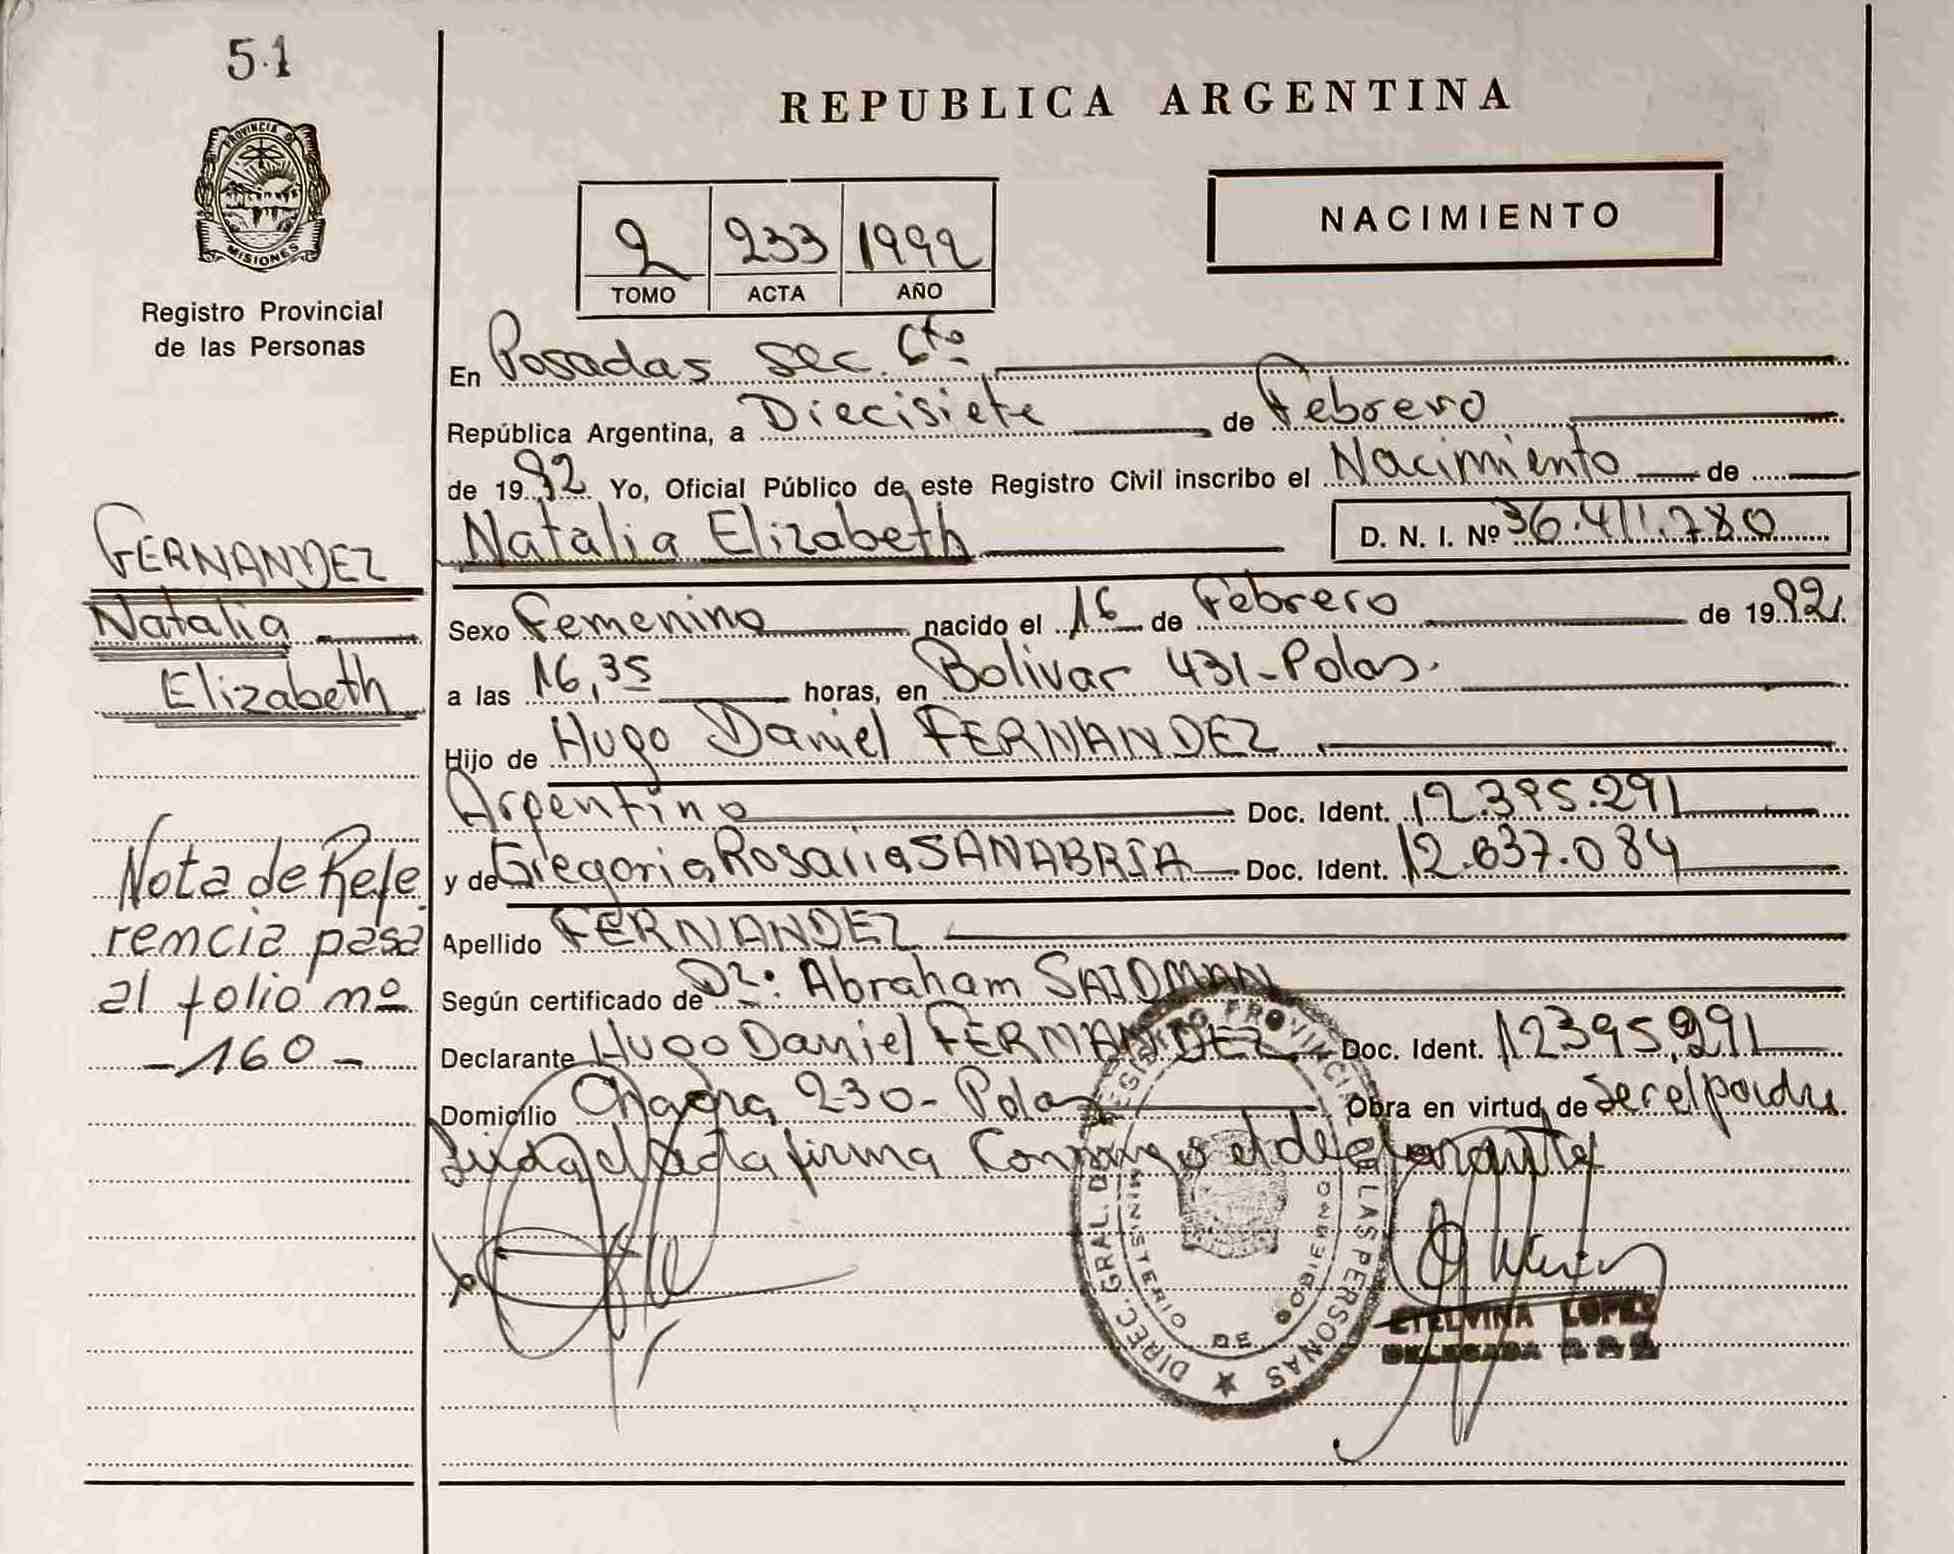 51
PROVINCIA DE
MISIONES
Registro Provincial
de las Personas
REPUBLICA ARGENTINA
NACIMIENTO
2 233 1992
TOMO ACTA AÑO
En Posadas Sec. 6ta
República Argentina, a Diecisiete de Febrero
de 1992 Yo, Oficial Público de este Registro Civil inscribo el Nacimiento de
Natalia Elizabeth D. N. I. Nº 36.411.780
Sexo Femenino nacido el 16 de Febrero de 1992
a las 16,35 horas, en Bolivar 431-Pdas.
Hijo de Hugo Daniel FERNANDEZ
Argentino Doc. Ident. 12.395.291
y de Gregoria Rosaria SANABRIA Doc. Ident. 12.637.084
Apellido FERNANDEZ
Según certificado de Dr: Abraham SAIDMAN
Declarante Hugo Daniel FERNANDEZ Doc. Ident. 12395,291
Domicilio Chacra 230- Pdas Obra en virtud de ser el padre
Leida el acta firma Conmigo el declarante
FERNANDEZ
Natalia
Elizabeth
Nota de Refe
rencia pasa
al folio nº
-160-
DIREC. GRAL. DEL REGISTRO PROVINCIAL DE LAS PERSONAS
MINISTERIO DE GOBIERNO
ETELVINA LOPEZ
DELEGADA